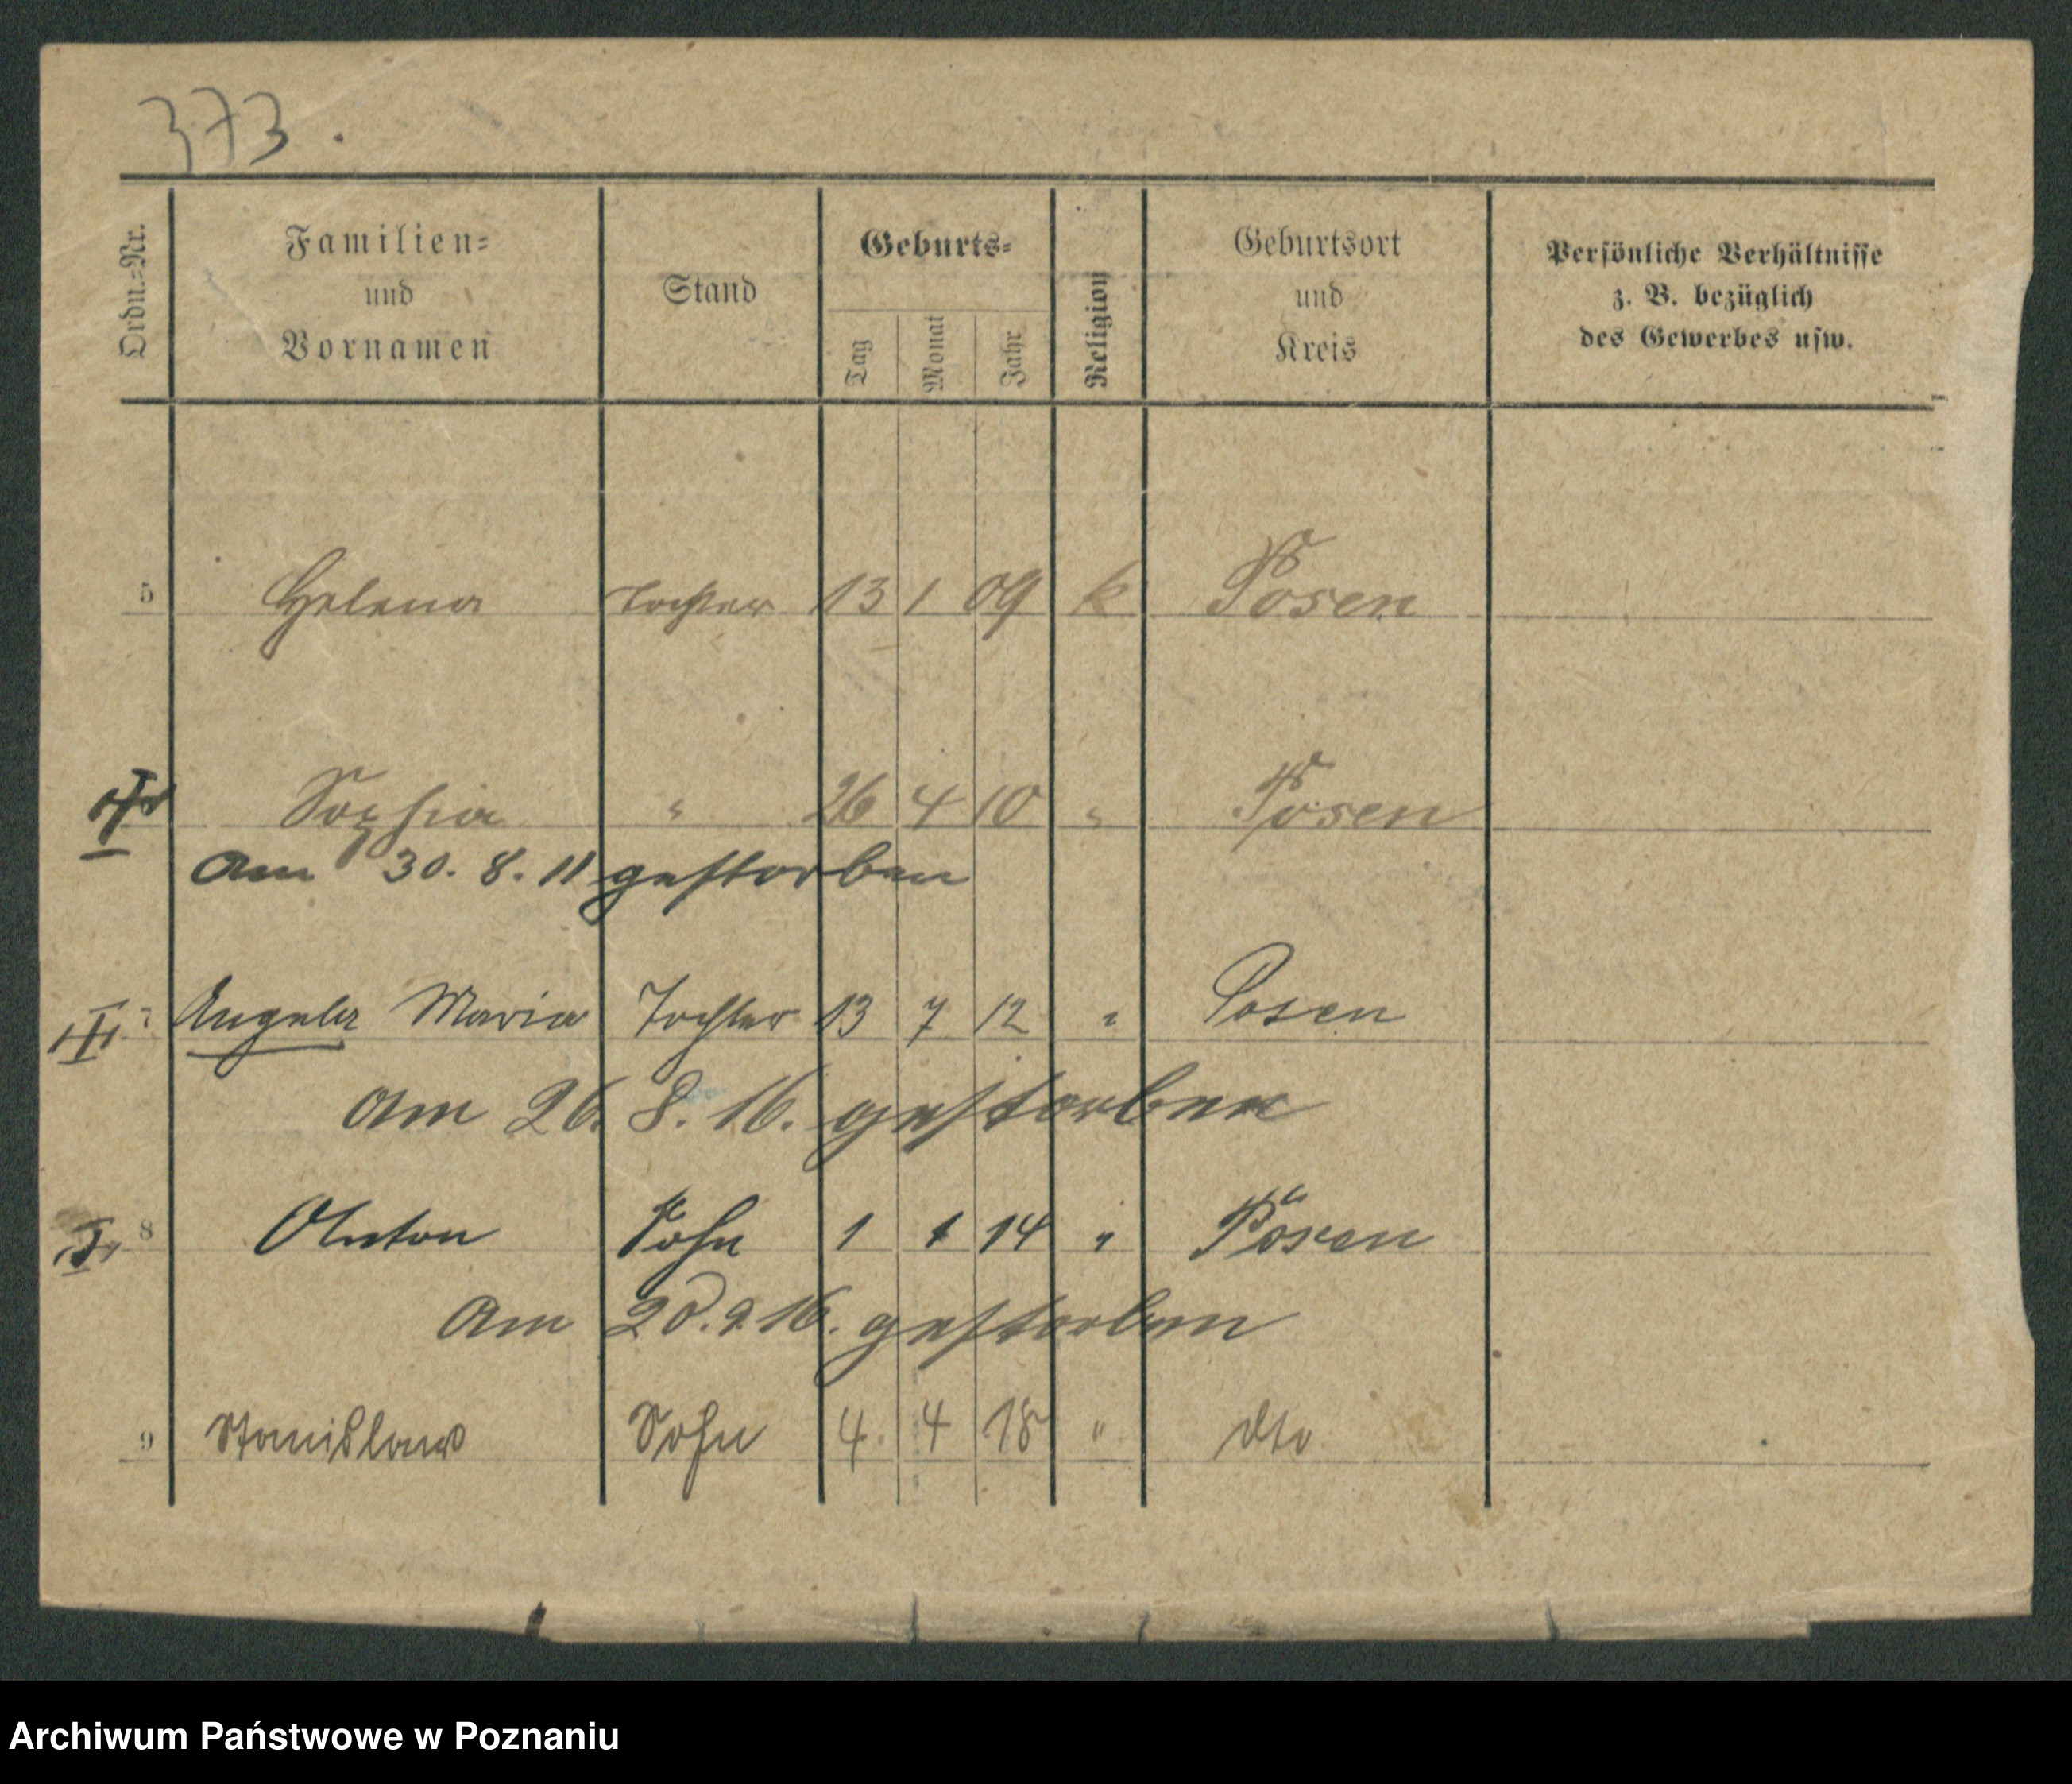 373.
Ordn.-Nr.
Familien-
und
Vornamen
Stand
Geburts-
Tag
Monat
Jahr
Religion
Geburtsort
und
Kreis
Persönliche Verhältnisse
z. B. bezüglich
des Gewerbes usw.
5 Helena Tochter 13 1 09 k Posen
Sophia " 26 4 10 " Posen
Am 30. 8. 11 gestorben
7 Angela Maria Tochter 13 7 12 " Posen
Am 26. 8. 16. gestorben
8 Anton Sohn 1 1 14 " Posen
Am 20. 9. 16. gestorben
9 Stanislaus Sohn 4. 4 18 " dto
Archiwum Państwowe w Poznaniu